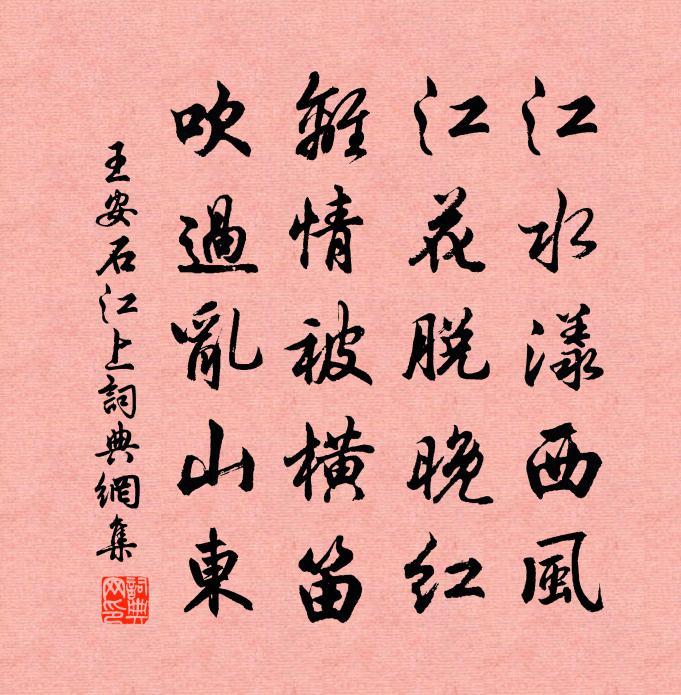 江水漾西風
江花脱晚红
離情被橫笛
吹過亂山東
王安石江上詞典網集
詞典網印